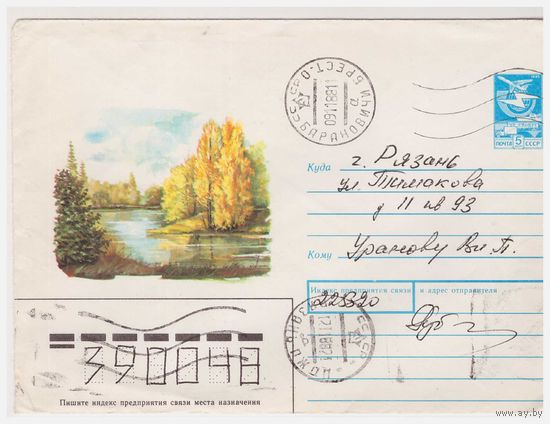 СССР БАРАНОВИЧИ БРЕСТ. О
091188 11
а
ПОЧТА 5 СССР
Куда г. Рязань
ул. Тимакова
д 11 кв 93
Кому Уранову Вл. П.
Индекс предприятия связи и адрес отправителя
225320
390048
Пишите индекс предприятия связи места назначения
www.ay.by